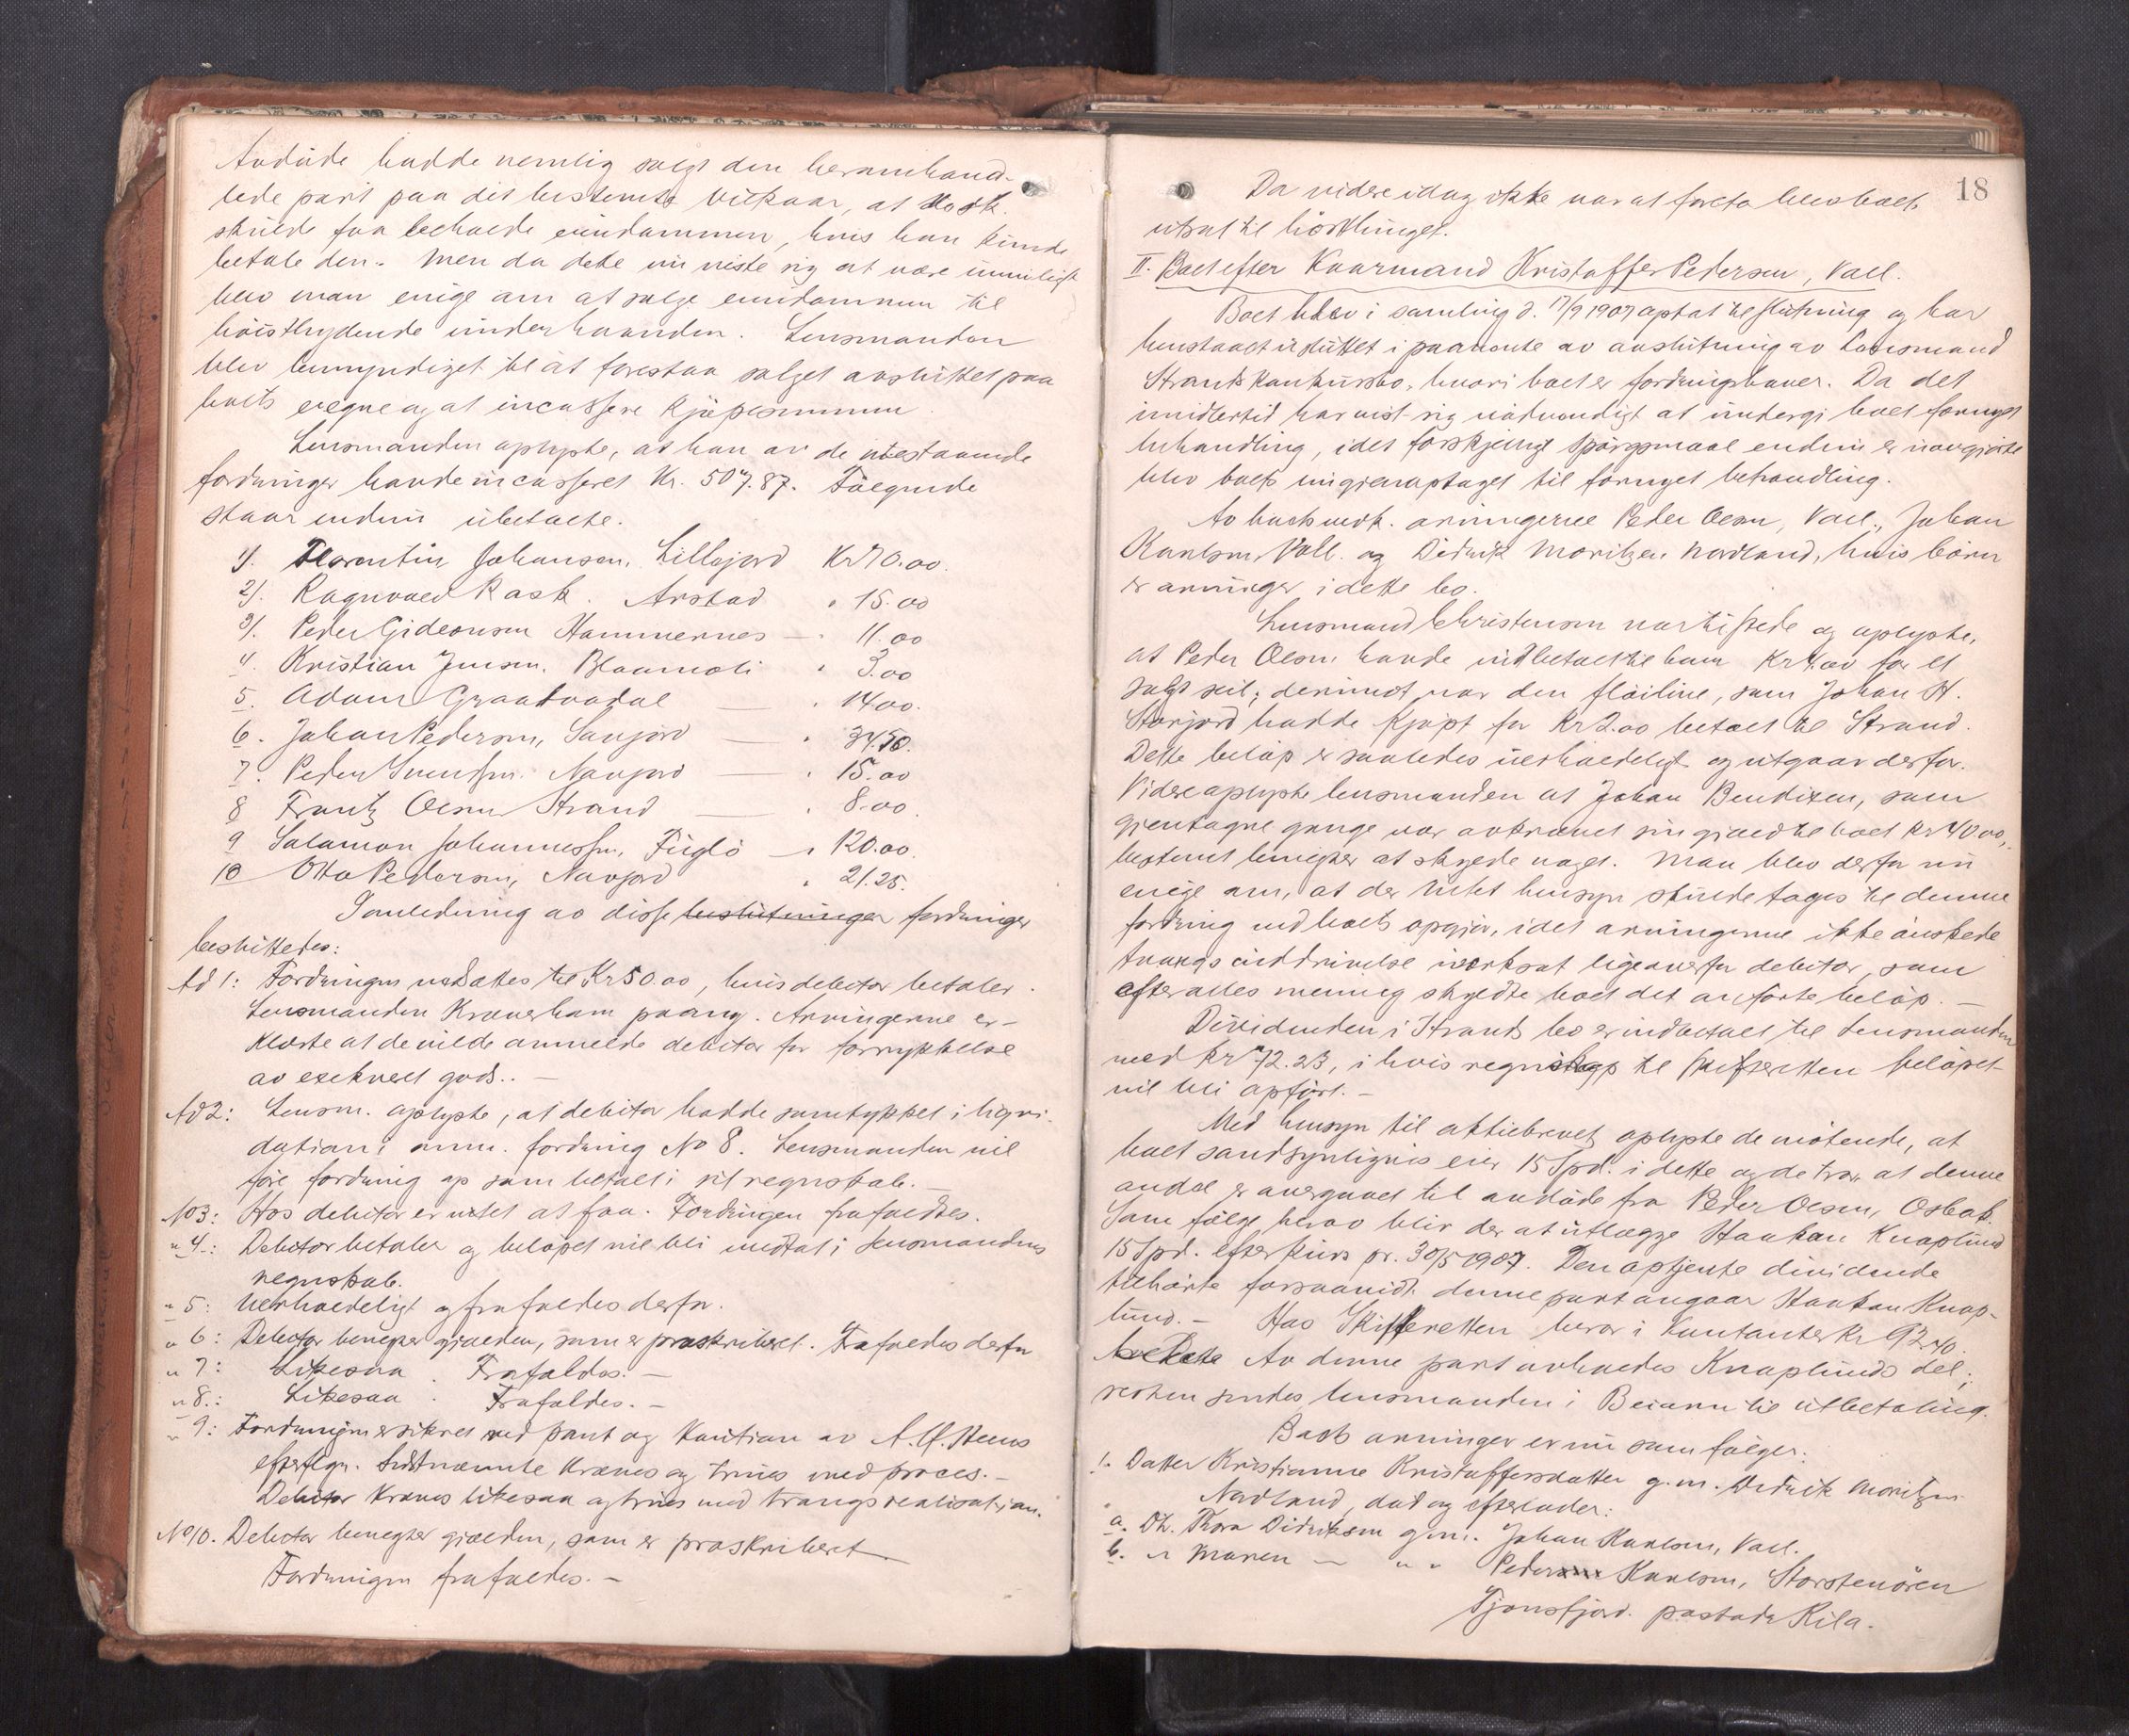 Avdøde hadde nemlig solgt den heromhand-
lede part paa det bestemte vilkaar, at
skulde faa beholde eiendommen, hvis han kunde
betale den. Men da dette nu viste sig at være umuligt
blev man enige om at sælge eiendommen til
høistbydende underhaanden. Lensmanden
blev bemyndiget til at forestaa salget avsluttet paa
boets vegne og at incassere kjøpesummen.
Lensmanden oplyste, at han av de utestaaende
fordringer havde incasseret Kr. 507.87. Følgende
staar endnu ubetalte.
1). Florentin Johansen, Lillegjord Kr 70.00.
2). Ragnvald Rask. Arstad " 15.00
3). Peder Gideonsen Hammernes — " 11.00
4. Kristian Jensen. Blaamoli " 3.00
5. Adam Graataadal — " 14.00.
6. Johan Pedersen, Sanjord — " 34.50.
7. Peder Svendsen. Navjord — " 15.00
8 Frantz Olsen Strand — " 8.00.
9 Salamon Johannessen, Fuglø — " 120.00.
10 Otto Pedersen, Navjord " 21.25.
I anledning av disse beslutninger fordringer
besluttedes:
Ad 1: Fordringen nedsattes til Kr 50.00, hvis debitor betaler.
Lensmanden kræver ham paany. Arvingerne er-
klærte at de vilde anmelde debitor for forrykkelse
av exekvert gods.. —
Ad 2: Lensm. oplyste, at debitor hadde samtykket i liqvi-
dation i anm. fordring No 8. Lensmanden vil
føre fordring op som betalt i sit regnskab. —
No 3: Hos debitor er intet at faa. Fordringen frafaldtes.
" 4.: Debitor betaler og beløpet vil bli medtat i lensmandens
regnskab.
" 5: Uerholdeligt og frafaldes derfor.
" 6: Debitor benegter gjælden, som er præskriberet. Frafaldes derfor
" 7: Likesaa. Frafaldes. —
" 8.: Likesaa. Frafaldes. —
" 9: Fordringen er sikret ved pant og kaution av A. Steens
efterflgr. Sidstnævnte kræves og trues med proces. —
Debitor kræves likesaa og trues med tvangsrealisation.
No 10. Debitor benegter gjælden, som er præskriberet
Fordringen frafaldes. —
18
Da videre idag ikke var at foreta blev boet
utsat til høstthinget.
II. Boet efter Kaarmand Kristoffer Pedersen, Vall.
Boet blev i samling d. 17/9 1907 optat til slutning og har
henstaaet usluttet i paavente av avslutning av Lensmand
Strands konkursbo, hvori boet er fordringshaver. Da det
imidlertid har vist sig nødvendigt at undergi boet fornyet
behandling, idet forskjellige spørgsmaal endnu er uavgjorte
blev boet nu gjenoptaget til fornyet behandling.
Av boets vedk. arvingerne Peder Olsen, Vall., Johan
Karlsen, Vall. og Didrik Moritzen Nordland, hvis børn
er arvinger i dette bo.
Lensmand Christensen var tilstede og oplyste,
at Peder Olsen havde indbetalt til ham Kr 4.00 for et
solgt seil; derimot var den fløiline, som Johan H.
Storjord hadde kjøpt for Kr 2.00 betalt til Strand.
Dette beløp er saaledes uerholdeligt og utgaar derfor.
Videre oplyste lensmanden at Johan Bendixen, som
gjentagne gange var avkrævet sin gjæld til boet Kr 40.00,
bestemt benegter at skylde noget. Man blev derfor nu
enige om, at der intet hensyn skulde tages til denne
fordring ved boets opgjør, idet arvingerne ikke ønskede
tvangsinddrivelse iverksat ligeoverfor debitor, som
efter alles mening skyldte boet det anførte beløp. —
Dividenden i Strands bo er indbetalt til lensmanden
med Kr 72.23, i hvis regnskap til skifteretten beløpet
vil bli opført. —
Med hensyn til aktiebrevet oplyste de møtende, at
boet sandsynligvis eier 15 Spd. i dette og de tror, at denne
andel er overgaaet til avdøde fra Peder Olsen, Osbak.
Som følge herav blir der at utlægge Haakon Knaplund
15 Spd. efter kurs pr. 30/5 1907. Den optjente dividende
tilhørte forsaavidt denne part angaar Haakon Knap-
lund. — Hos Skifteretten beror i kontanter Kr 92.40.
Av denne part avholdes Knaplunds del;
resten sendes lensmanden i Beiarn til utbetaling.
Boets arvinger er nu som følger:
1. Datter Kristianne Kristoffersdatter g. m. Didrik Moritzen
Nordland, død og efterlader:
a. Dt. Thora Didriksen g.m. Johan Karlsen, Vall.
b. " Maren — " " Peder Karlsen, Storstenøren
Tjonsfjord. postadr Kila.